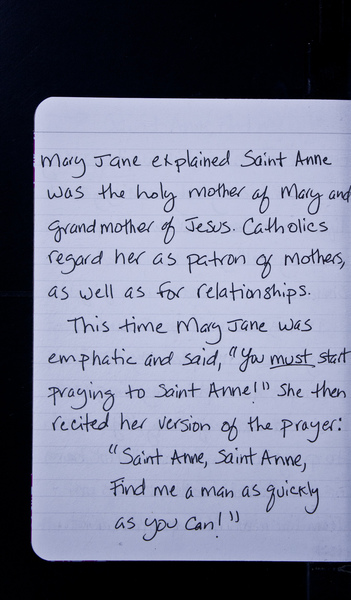 Mary Jane explained Saint Anne
was the holy mother of Mary and
grandmother of Jesus. Catholics
regard her as patron of mothers,
as well as for relationships.
This time Mary Jane was
emphatic and said, "You must start
praying to Saint Anne!" She then
recited her version of the prayer:
"Saint Anne, Saint Anne,
Find me a man as quickly
as you can!"